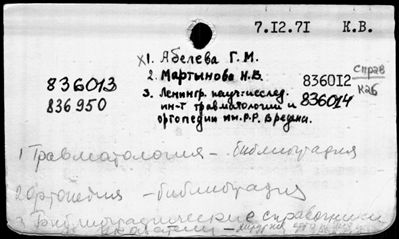 7.12.71 К.В.
X1. Абелева Г.М.
2. Мартынова Н.В. 836012 Справ
836013 3. Ленингр. науч.-исслед. 836014 каб
836950 ин-т травматологии и
ортопедии им. Р.Р. Вредена.
1 Травматология - библиография
2 Ортопедия - библиография
3 Библиографические справочники
указатели -